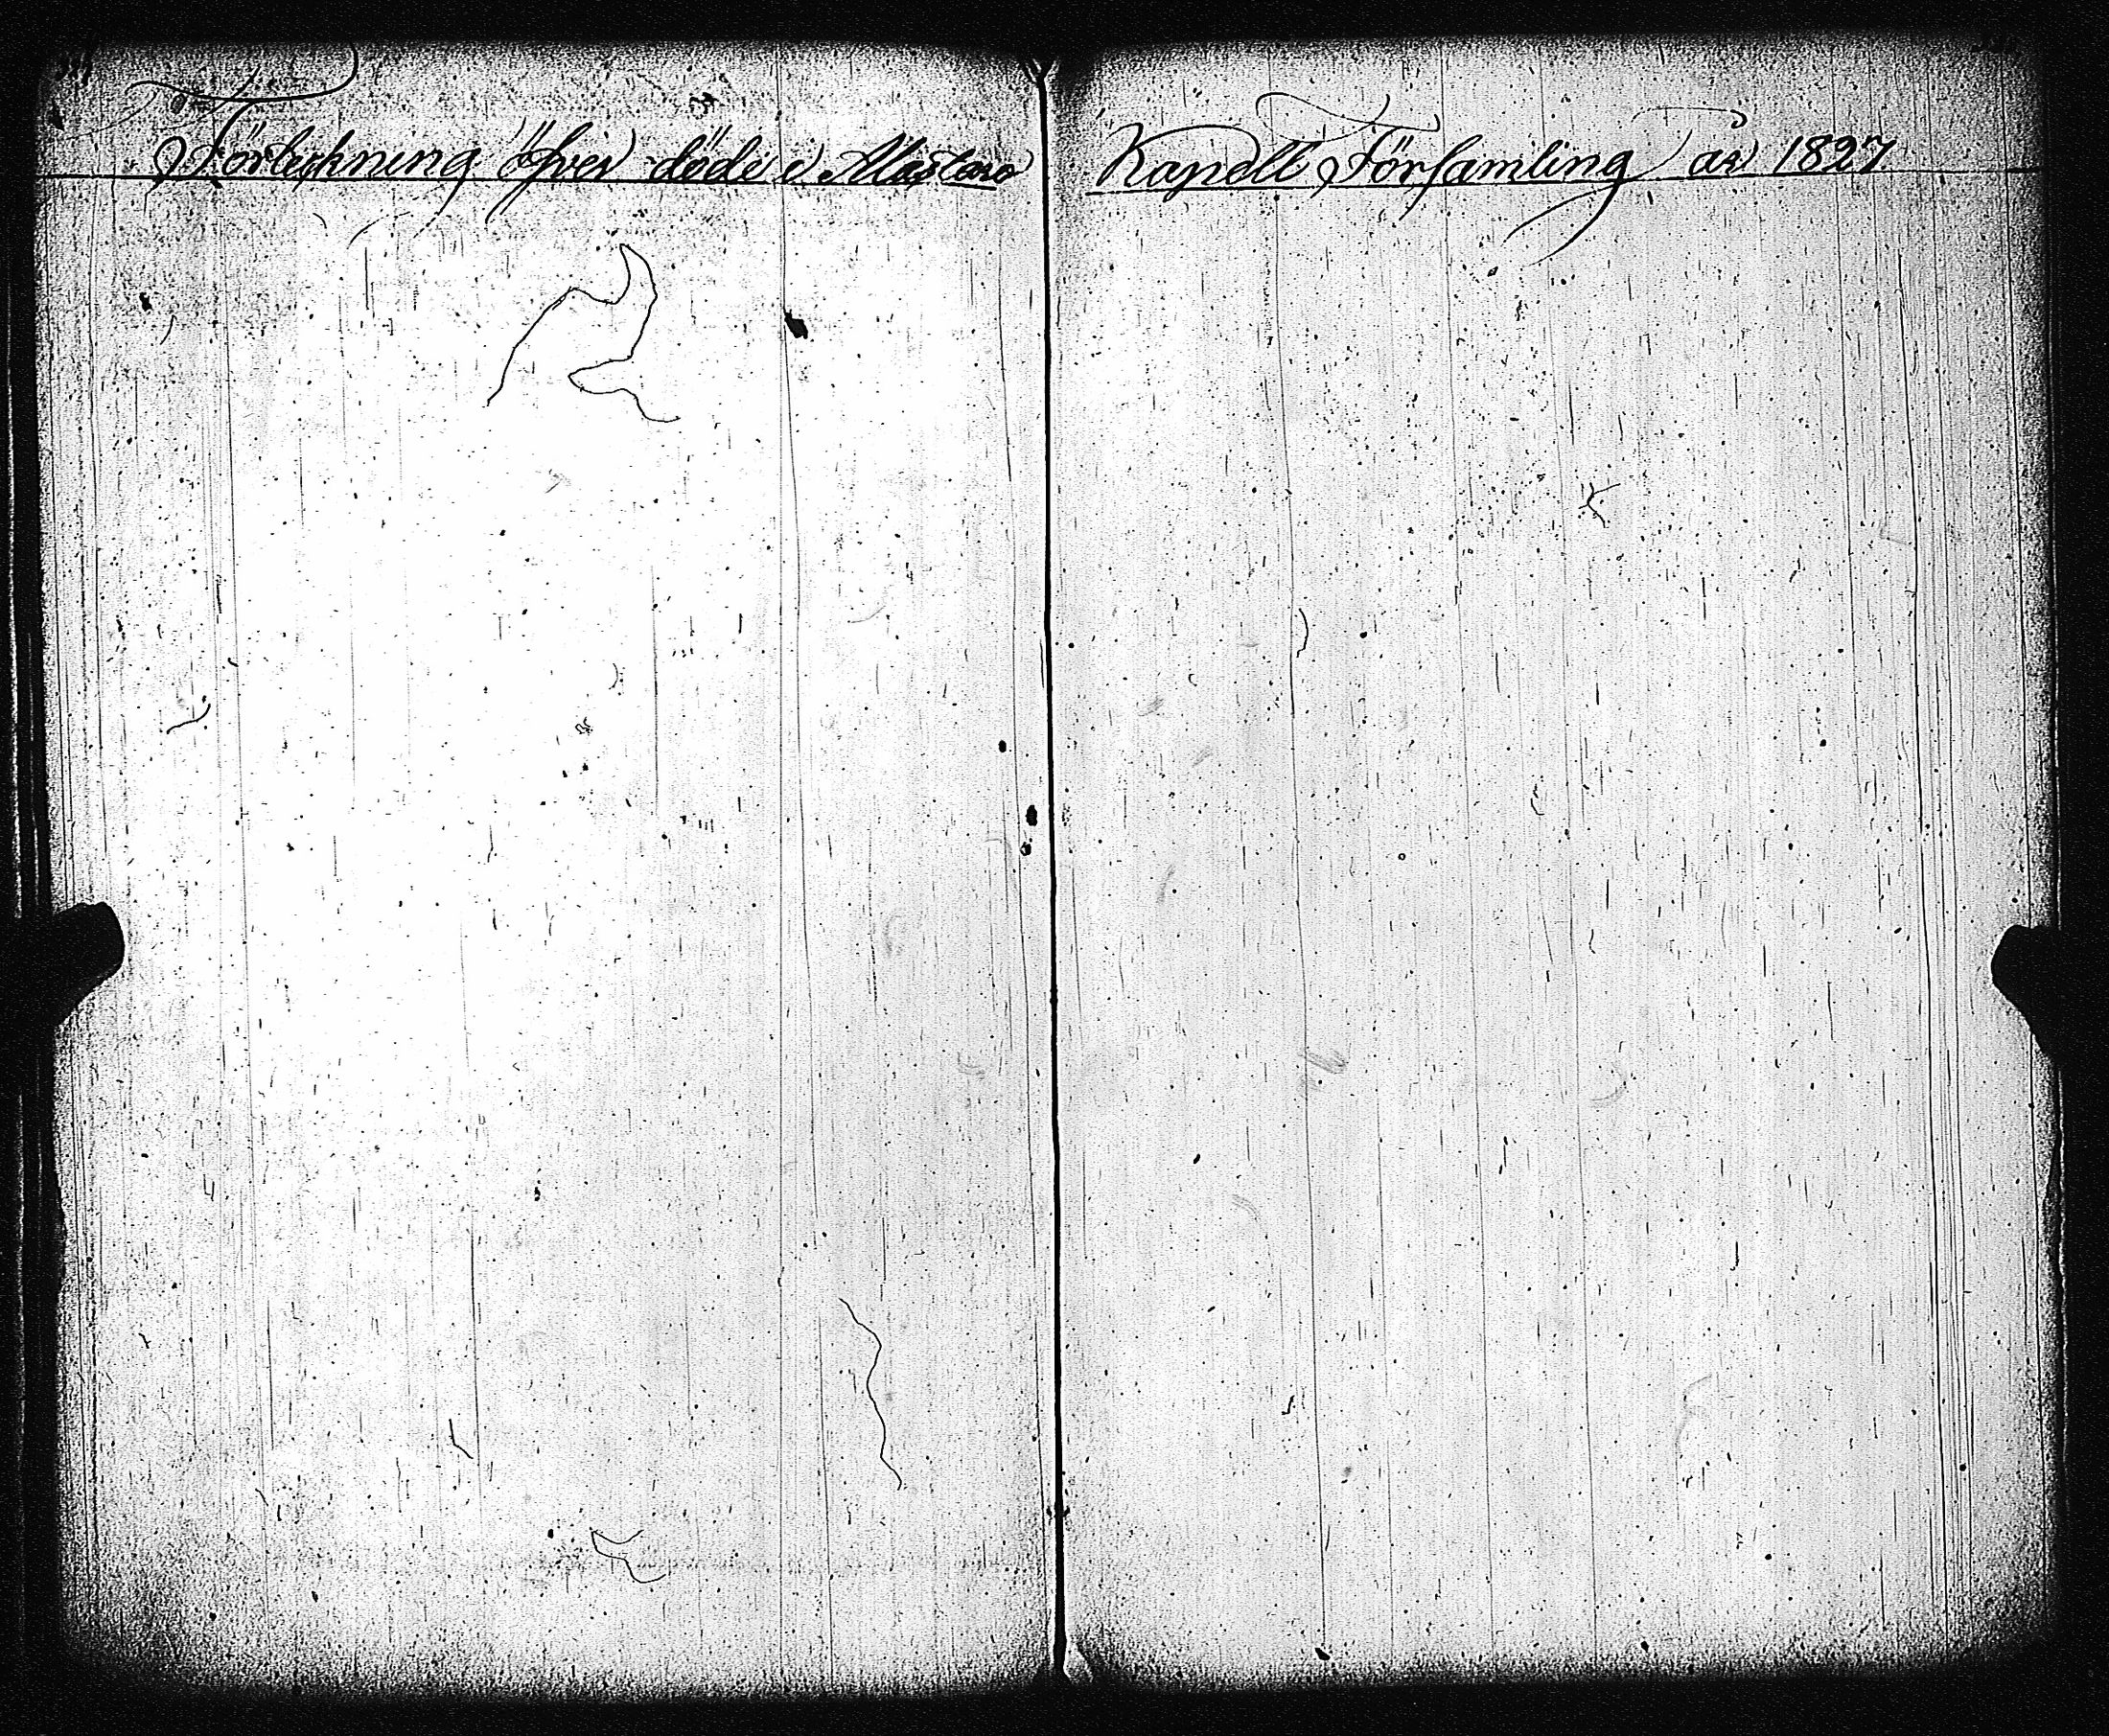 Förteckning öfver döde i Alastaro Kapell Församling år 1827.